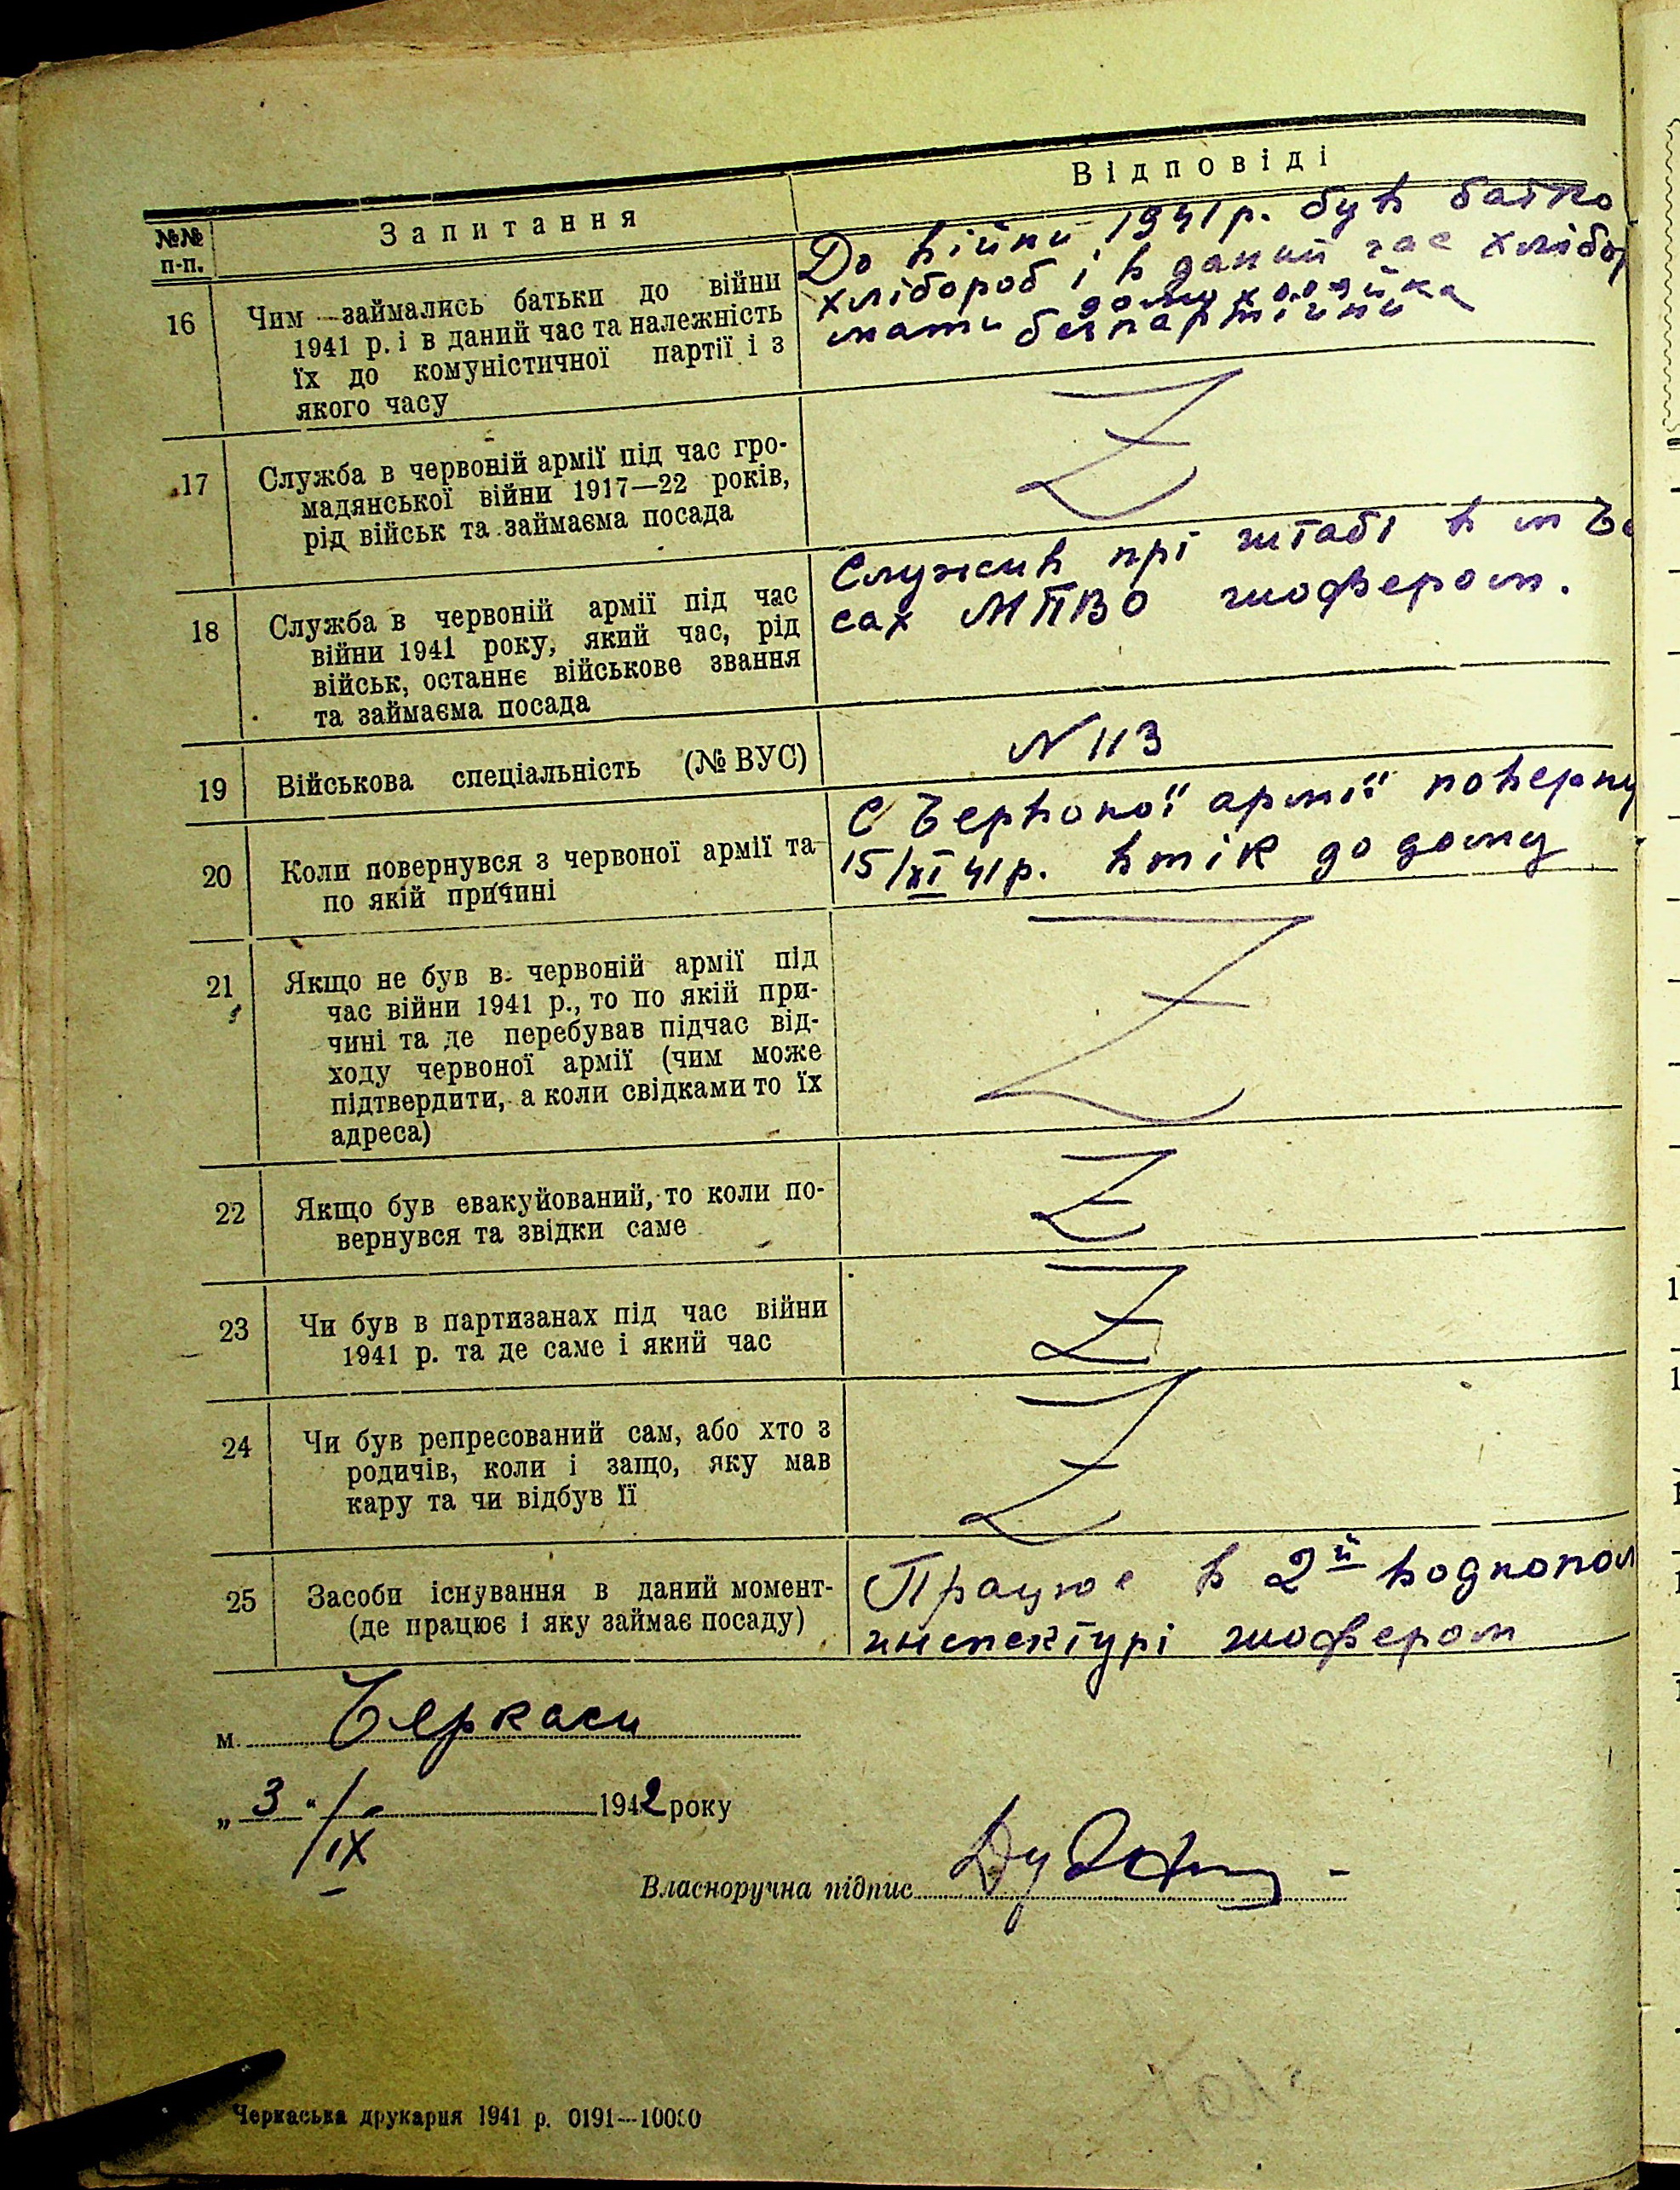 №№ п-п.
Запитання
Відповіді
16
Чим займались батьки до війни
1941 р. і в даний час та належність
їх до комуністичної партії і з
якого часу
До війни 1941 р. був батько
хлібороб і в даний час хлібор
мати домохозяйка
безпартійни
17
Служба в червоній армії під час гро-
мадянської війни 1917—22 років,
рід військ та займаєма посада
Z
18
Служба в червоній армії під час
війни 1941 року, який час, рід
військ, останнє військове звання
та займаєма посада
Служив прі штабі в м Че
сах МПВО шофером.
19
Військова спеціальність (№ ВУС)
N 113
20
Коли повернувся з червоної армії та
по якій причині
С Червоної армії поверну
15/XI 41 р. втік до дому
21
Якщо не був в червоній армії під
час війни 1941 р., то по якій при-
чині та де перебував підчас від-
ходу червоної армії (чим може
підтвердити, а коли свідками то їх
адреса)
Z
22
Якщо був евакуйований, то коли по-
вернувся та звідки саме
Z
23
Чи був в партизанах під час війни
1941 р. та де саме і який час
Z
24
Чи був репресований сам, або хто з
родичів, коли і защо, яку мав
кару та чи відбув її
Z
25
Засоби існування в даний момент-
(де працює і яку займає посаду)
Працює в 2й водnопол
инспектурі шофером
м. Черкаси
„ 3 “ / IX 1942 року
Власноручна підпис
Черкаська друкарня 1941 р. 0191—10000